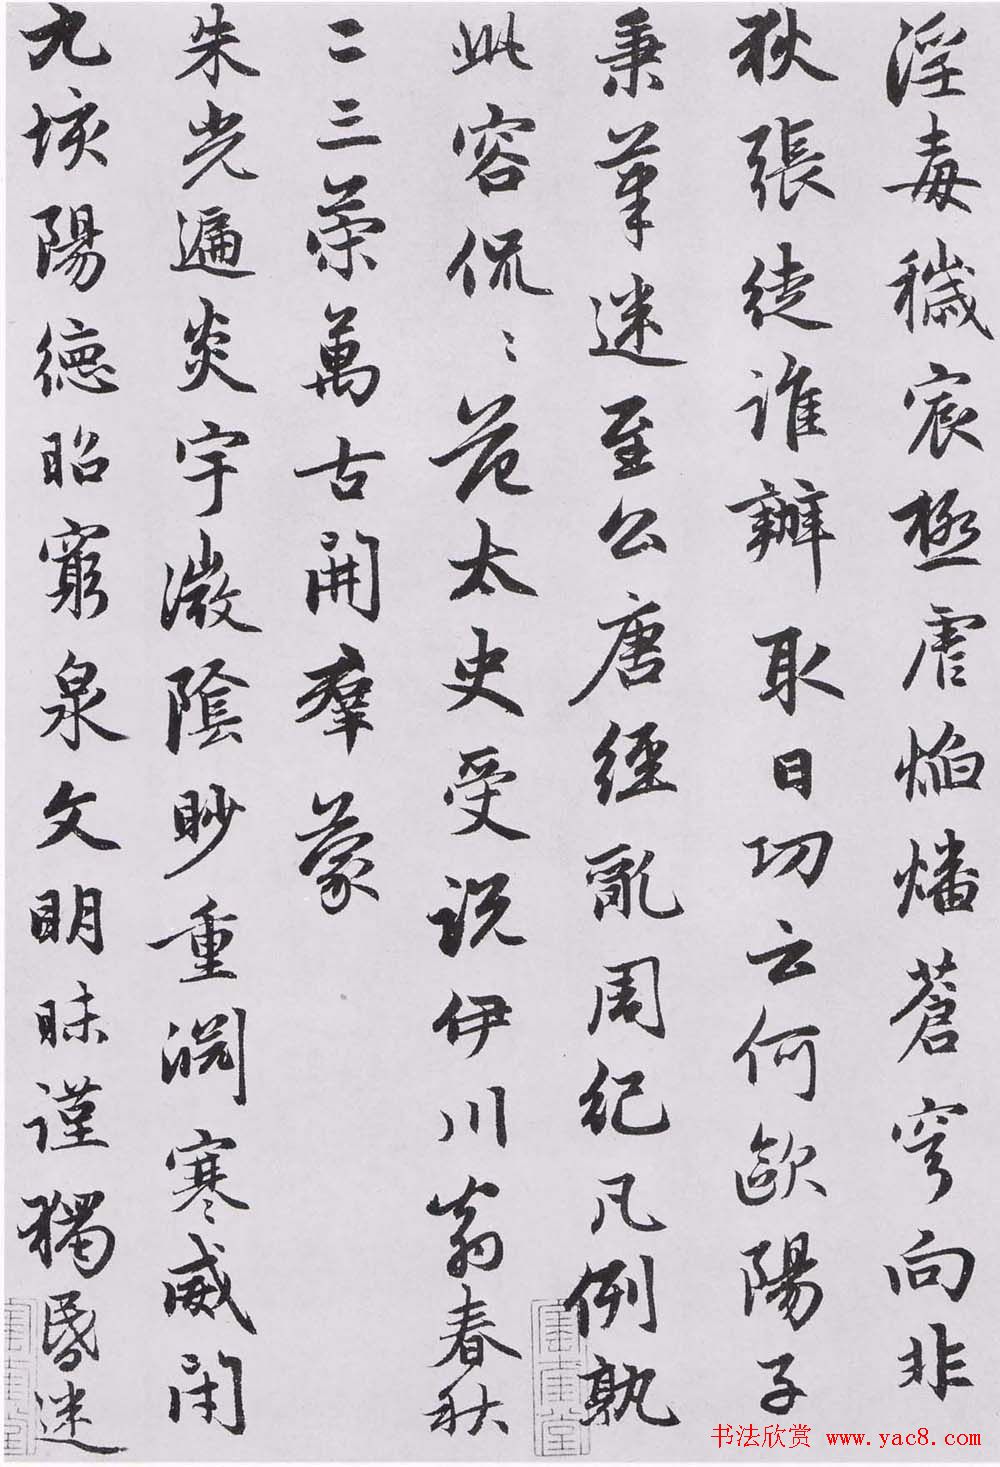 淫毒穢宸極虐焰燔蒼穹向非
狄張徒誰辦取日功云何歐陽子
秉筆迷至公唐經亂周紀凡例孰
此容侃〻范太史受説伊川翁春秋
二三策萬古開羣蒙
朱光遍炎宇微陰眇重淵寒威閉
九垓陽德昭窮泉文明昧謹獨昏迷
书法欣赏 www.yac8.com